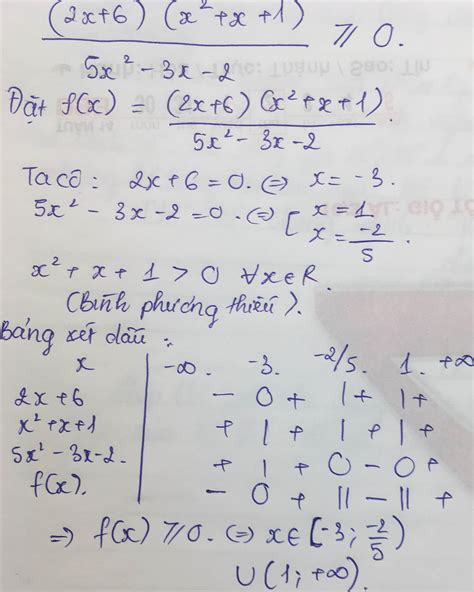 (2x+6) (x²+x+1) / 5x²-3x-2 ⩾ 0.
Đặt f(x) = (2x+6)(x²+x+1) / 5x²-3x-2.
Ta có: 2x+6=0. ⇔ x=-3.
5x²-3x-2=0. ⇔ [ x=1 x=-2/5.
x²+x+1>0 ∀x∈R.
(Bình phương thiếu).
Bảng xét dấu:
x | -∞. -3. -2/5. 1. +∞
2x+6 | - 0 + | + | +
x²+x+1 | + | + | + | +
5x²-3x-2. | + | + 0 - 0 +
f(x). | - 0 + || - || +
⇒ f(x) ⩾0. ⇔ x∈[-3; -2/5)
∪(1; +∞).